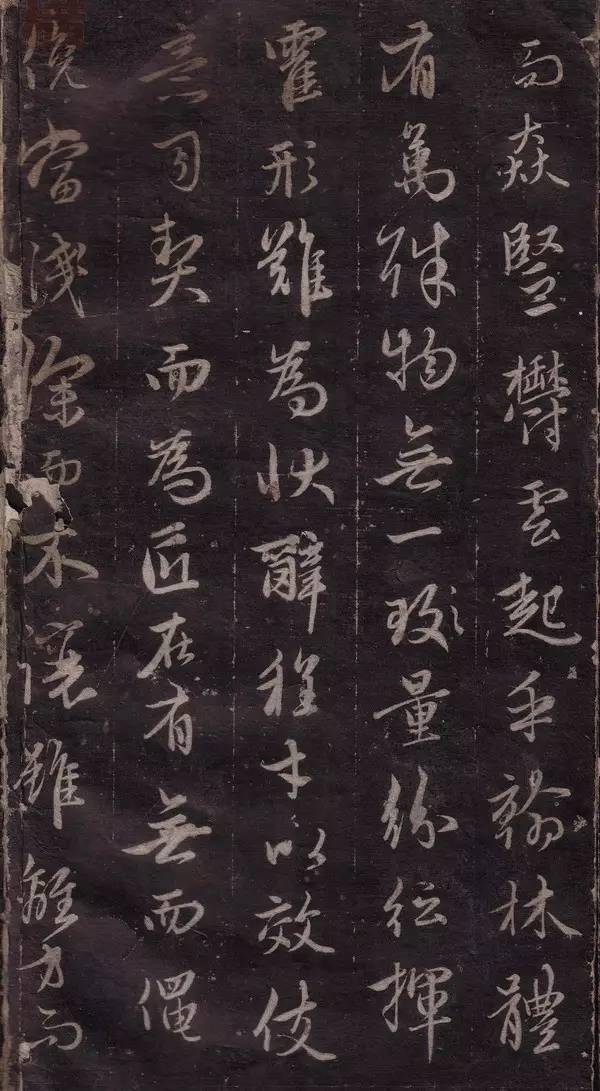 而猋竪欝雲起乎翰林體
有萬殊物無一量紛紜揮
霍形難為狀辭程才以效伎
意司契而為匠在有無而僶
俛當淺深而不讓雖離方而